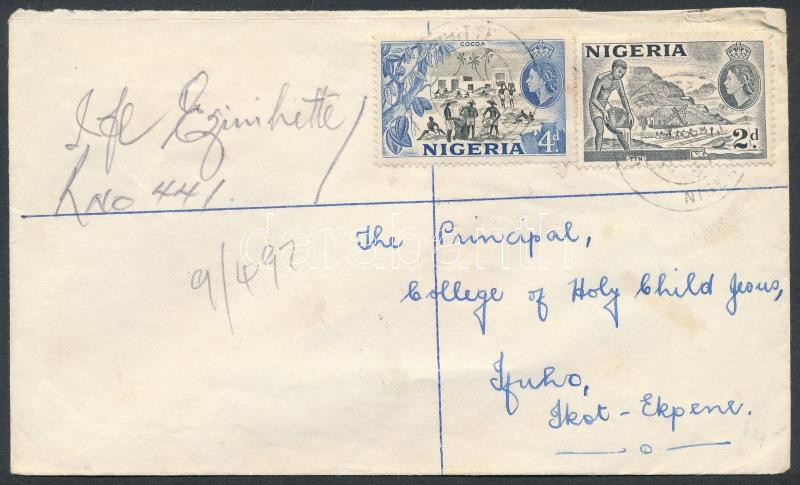 COCOA
4d.
NIGERIA
NIGERIA
2d.
TIN
Ife Ezinihette
R No 441.
9/492
The Principal,
College of Holy Child Jesus,
Ifuho,
Ikot-Ekpene.
darabanth